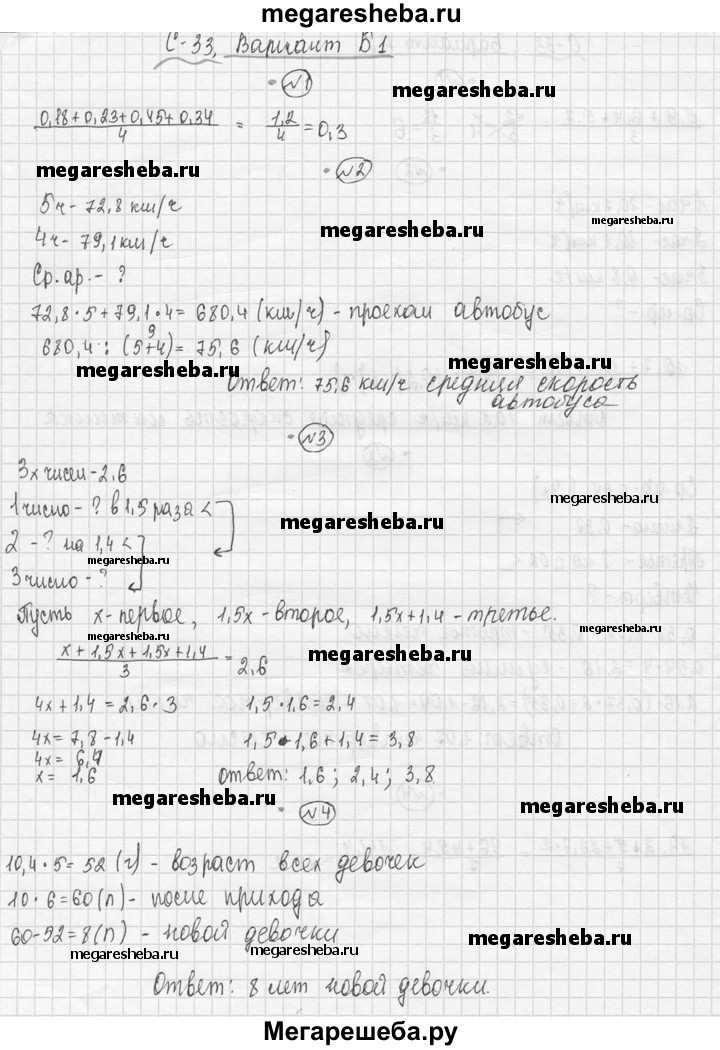 megaresheba.ru
С-33. Вариант Б1
№1
megaresheba.ru
(0,18+0,23+0,45+0,34)/4 = 1,2/4 = 0,3
megaresheba.ru
megaresheba.ru
№2
5ч - 72,8 км/ч
megaresheba.ru
4ч - 79,1 км/ч
megaresheba.ru
Ср. ар. - ?
72,8·5+79,1·4=680,4 (км/ч) - проехал автобус
9
680,4 : (5+4)=75,6 (км/ч)
megaresheba.ru
megaresheba.ru
Ответ: 75,6 км/ч средняя скорость
автобуса
№3
3х чисел - 2,6
megaresheba.ru
1 число - ? в 1,5 раза <
megaresheba.ru
2 - ? на 1,4 <
megaresheba.ru
3 число - ?
Пусть x - первое, 1,5x - второе, 1,5x+1,4 - третье.
megaresheba.ru
megaresheba.ru
(x+1,5x+1,5x+1,4)/3 = 2,6
megaresheba.ru
4x+1,4=2,6·3 1,5·1,6=2,4
4x=7,8-1,4 1,5·1,6+1,4=3,8
4x= 6,4
x= 1,6 ответ: 1,6; 2,4; 3,8
megaresheba.ru
megaresheba.ru
№4
10,4·5=52 (г) - возраст всех девочек
10·6=60(л) - после прихода
60-52=8(л) - новой девочки
megaresheba.ru
megaresheba.ru
megaresheba.ru
Ответ: 8 лет новой девочки.
Мегарешеба.ру